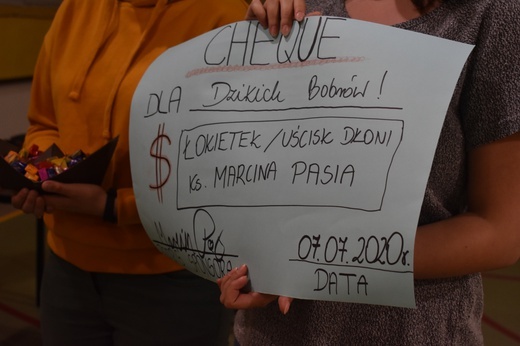 CHEQUE
DLA Dzikich Bobrów!
$
ŁOKIETEK/UŚCISK DŁONI
Ks. MARCINA PASIA
07.07.2020r.
DATA